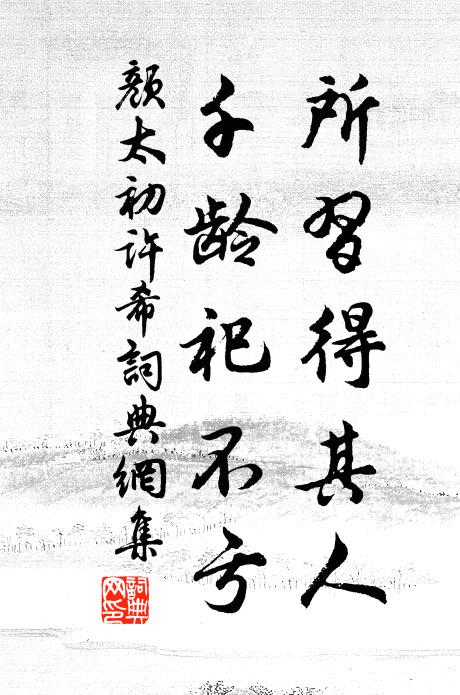 所習得其人
千齡祀不亏
顏太初許希詞典網集
詞典網印